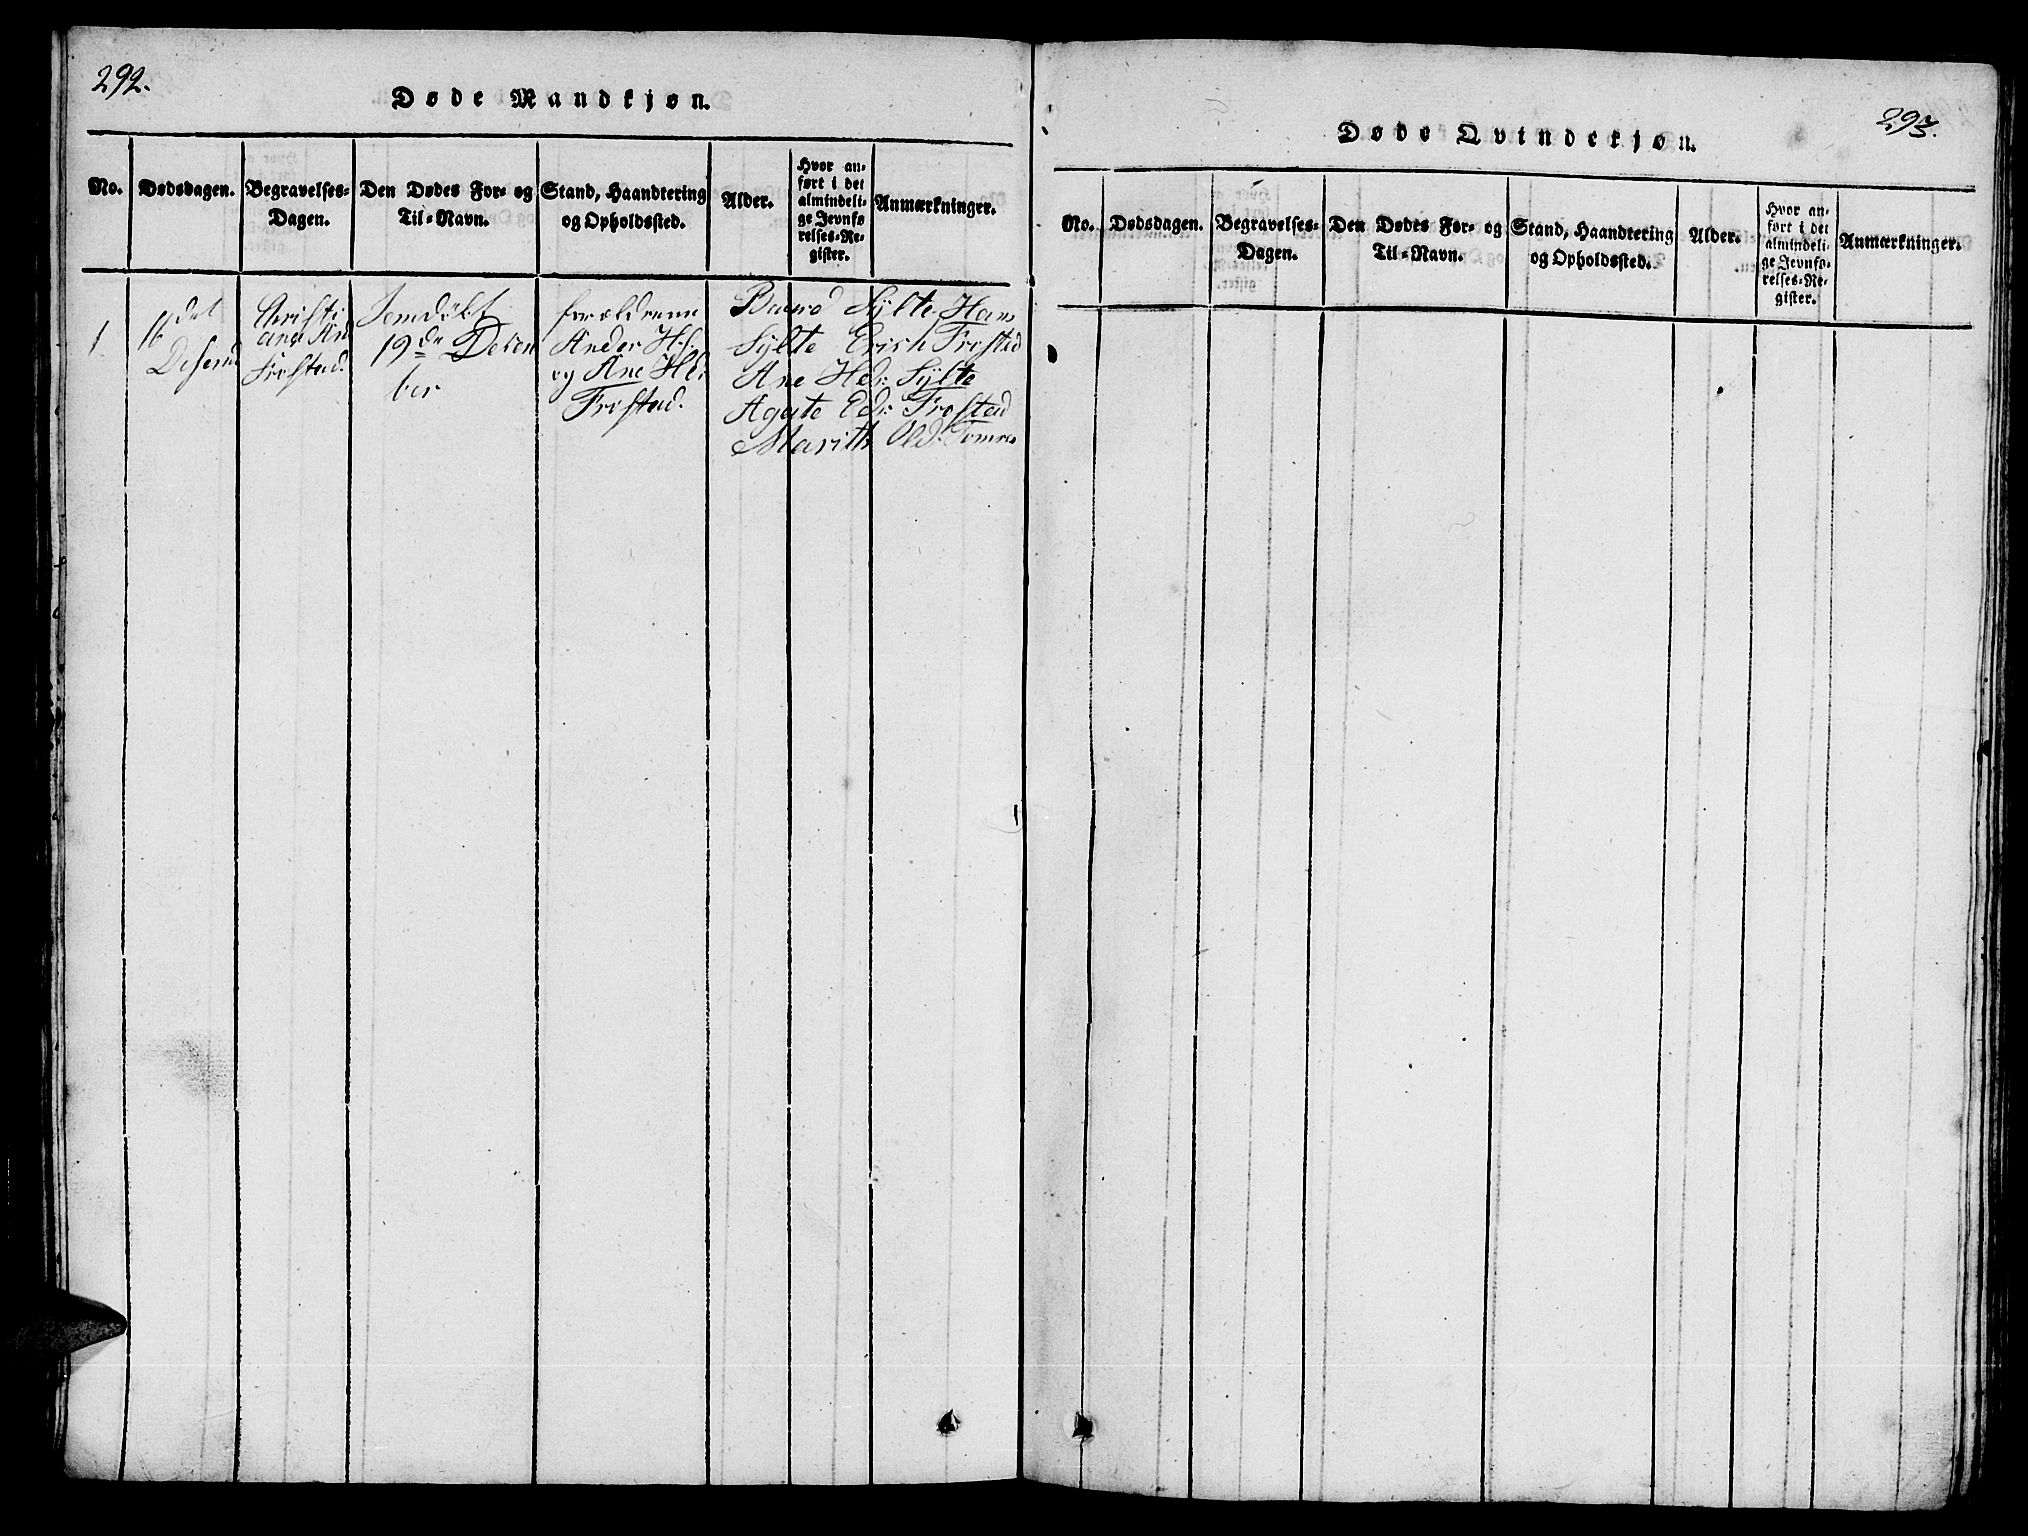 292.
Døde Mandkjøn.
No.
Dødsdagen.
Begravelses-
Dagen.
Den Dødes For- og
Til-Navn.
Stand, Haandtering
og Opholdssted.
Alder.
Hvor an-
ført i det
almindeli-
ge Jevnfø-
relses-Re-
gister.
Anmærkninger.
1
16 det
Desem
Christi
ana An
Frostad.
19de Desem
ber
foreldrene
Ander H.s.
og Ane Hdr
Frostad.
Baard Sylte Hans
Sylte Erich Frostad
Ane Hdr: Sylte
Agate Edr: Frostad
Marith Old: Tomre
293.
Døde Qvindekjøn.
No.
Dødsdagen.
Begravelses-
Dagen.
Den Dødes For- og
Til-Navn.
Stand, Haandtering
og Opholdssted.
Alder.
Hvor an-
ført i det
almindeli-
ge Jevnfø-
relses-Re-
gister.
Anmærkninger.